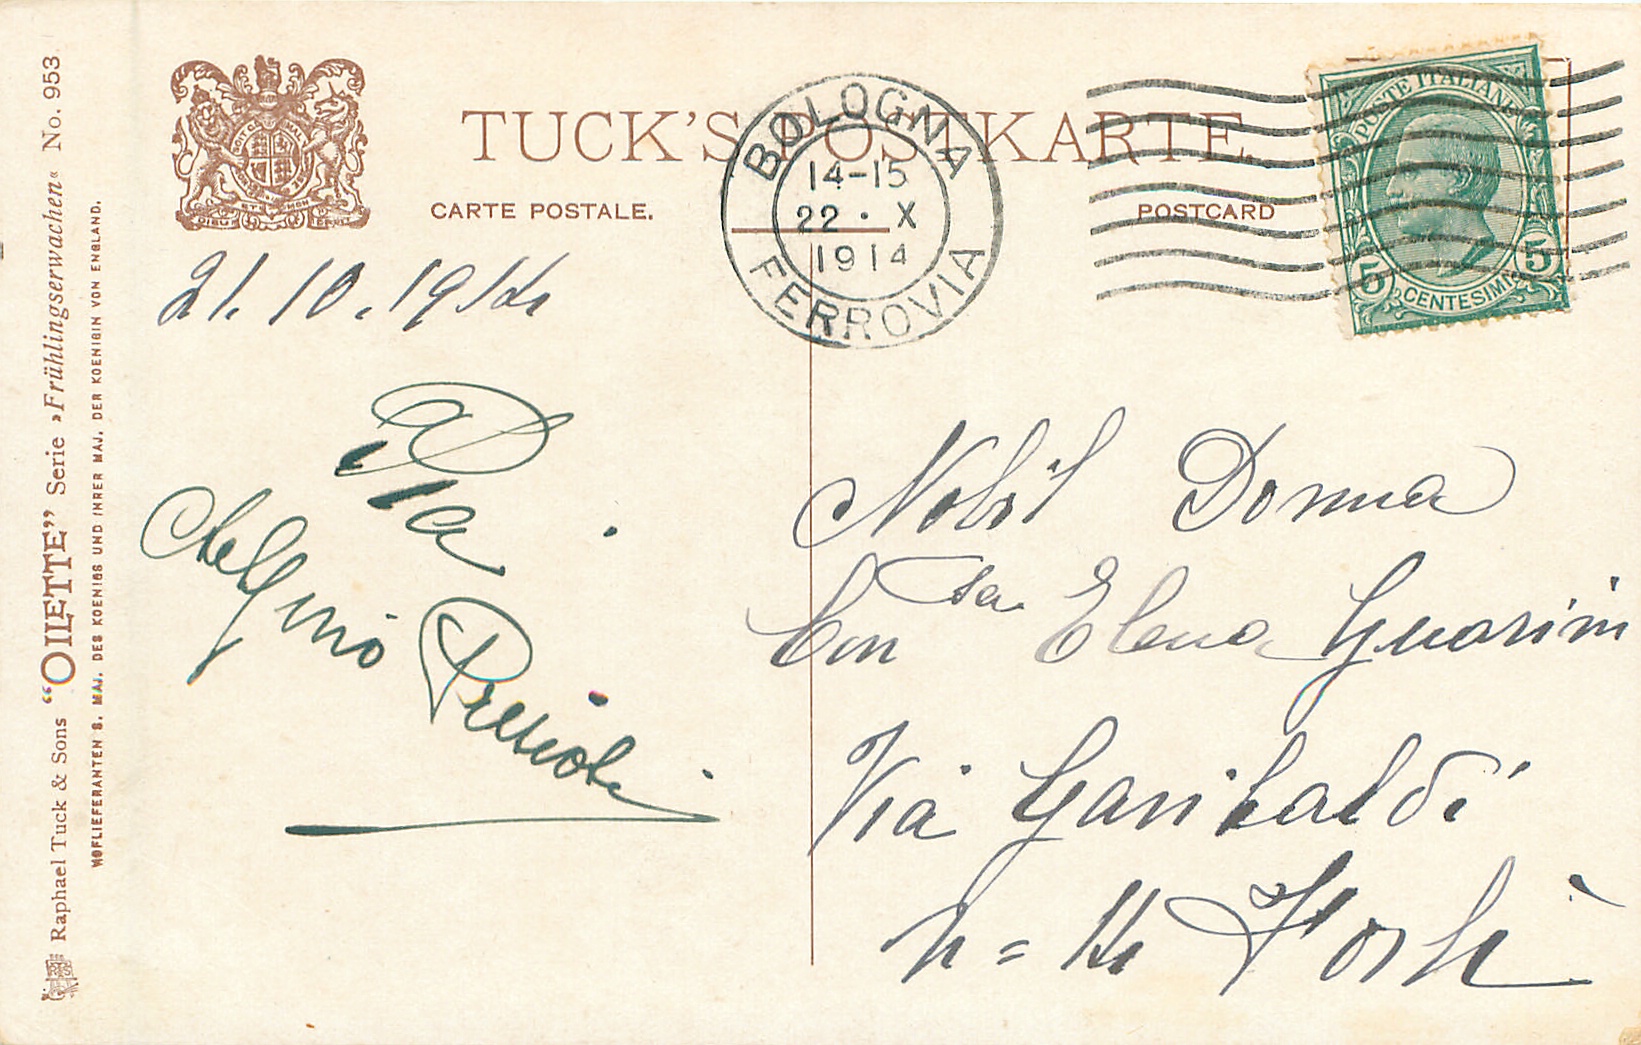 Raphael Tuck & Sons “OILETTE” Serie »Frühlingserwachen« No. 953
HOFLIEFERANTEN S. MAJ. DES KOENIGS UND IHRER MAJ. DER KOENIGIN VON ENGLAND.
DIEU ET MON DROIT
TUCK'S POSTKARTE.
CARTE POSTALE.
POSTCARD
BOLOGNA
14-15
22 · X
1914
FERROVIA
POSTE ITALIANE
5 5
CENTESIMI
21.10.1914
Pia
Nobil Donna
Con sa Elena Guarini
Via Garibaldi
n = 14 Forlì